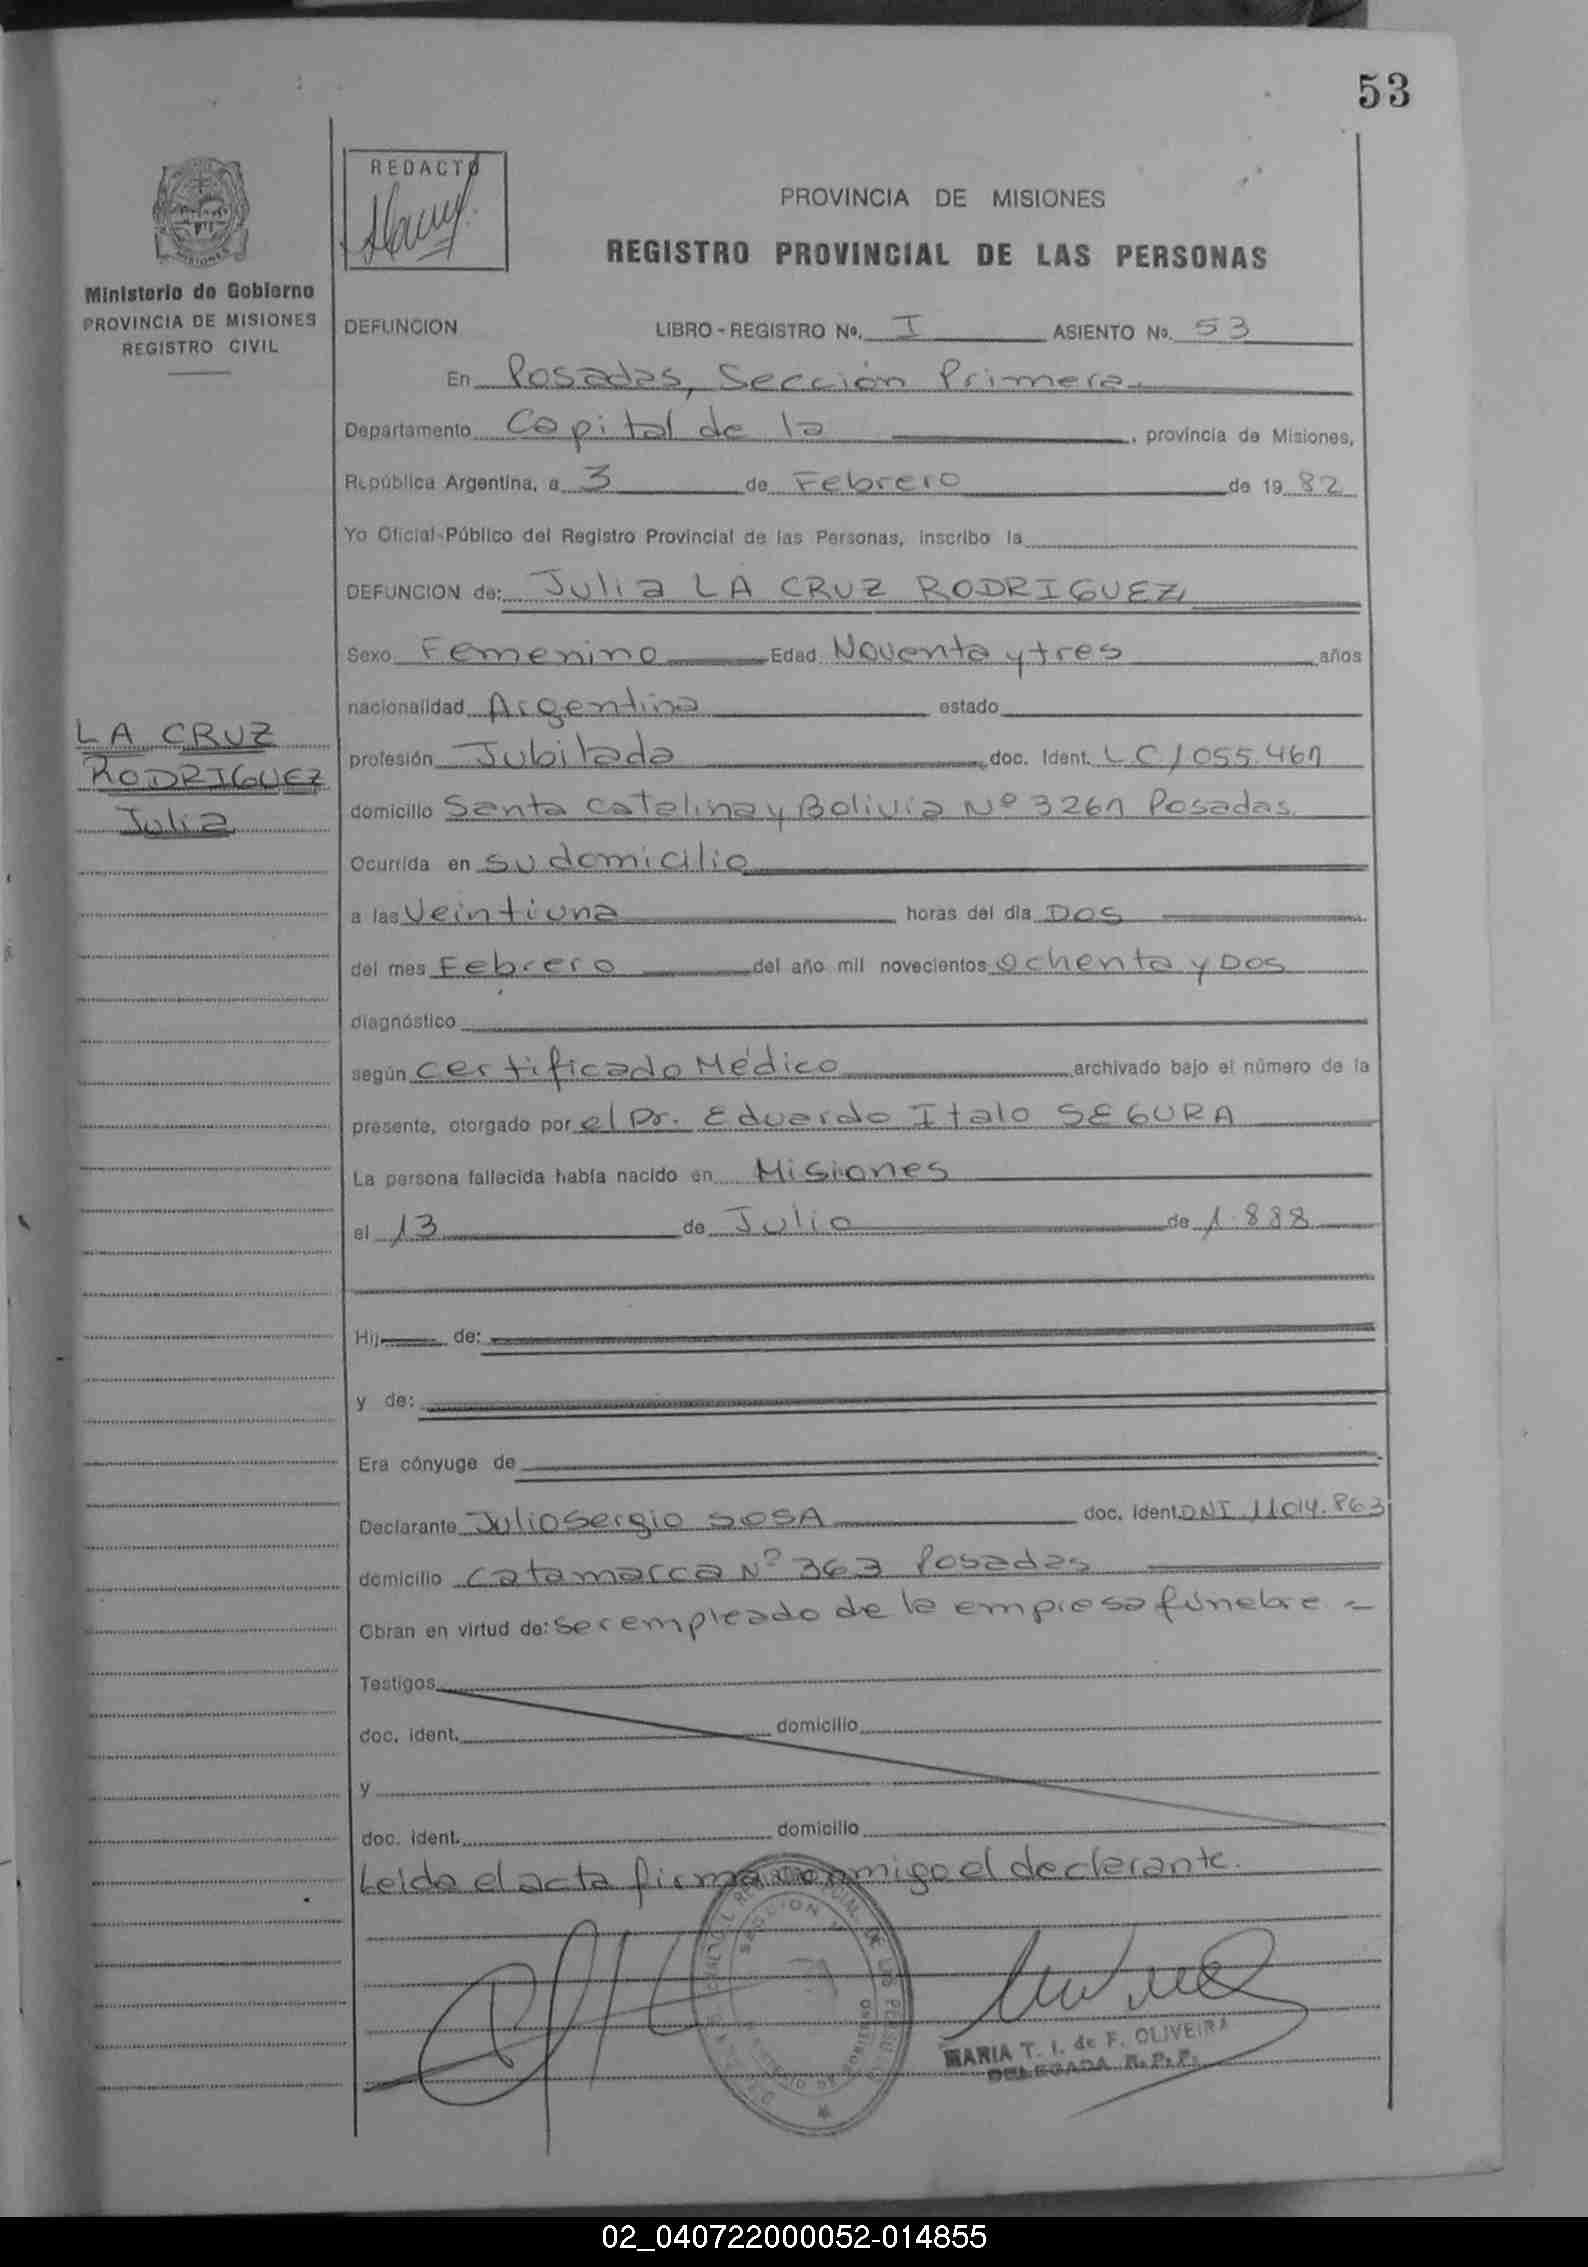 53
REDACTO
PROVINCIA DE MISIONES
REGISTRO PROVINCIAL DE LAS PERSONAS
MISIONES
Ministerio de Gobierno
PROVINCIA DE MISIONES
REGISTRO CIVIL
DEFUNCION LIBRO - REGISTRO No. I ASIENTO No. 53
En Posadas, Sección Primera
Departamento Capital de la , provincia de Misiones,
República Argentina, a 3 de Febrero de 19 82
Yo Oficial-Público del Registro Provincial de las Personas, inscribo la
DEFUNCION de: Julia LA CRUZ RODRIGUEZ
Sexo Femenino Edad Noventa y tres años
nacionalidad Argentina estado
LA CRUZ
RODRIGUEZ
Julia
profesión Jubilada doc. Ident. LC 1055.467
domicilio Santa Catalina y Bolivia Nº 3267 Posadas
Ocurrida en su domicilio
a las Veintiuna horas del día DOS
del mes Febrero del año mil novecientos Ochenta y DOS
diagnóstico
según certificado Médico archivado bajo el número de la
presente, otorgado por el Dr. Eduardo Italo SEGURA
La persona fallecida había nacido en Misiones
el 13 de Julio de 1.888
Hij de:
y de:
Era cónyuge de
Declarante Julio Sergio SOSA doc. Ident. DNI. 11014.863
domicilio Catamarca Nº 363 Posadas
Obran en virtud de: ser empleado de la empresa fúnebre =
Testigos
doc. ident. domicilio
y
doc. ident. domicilio
Leida el acta firma conmigo el declarante.
MARIA T. I. de F. OLIVEIRA
DELEGADA R. P. P.
02_040722000052-014855